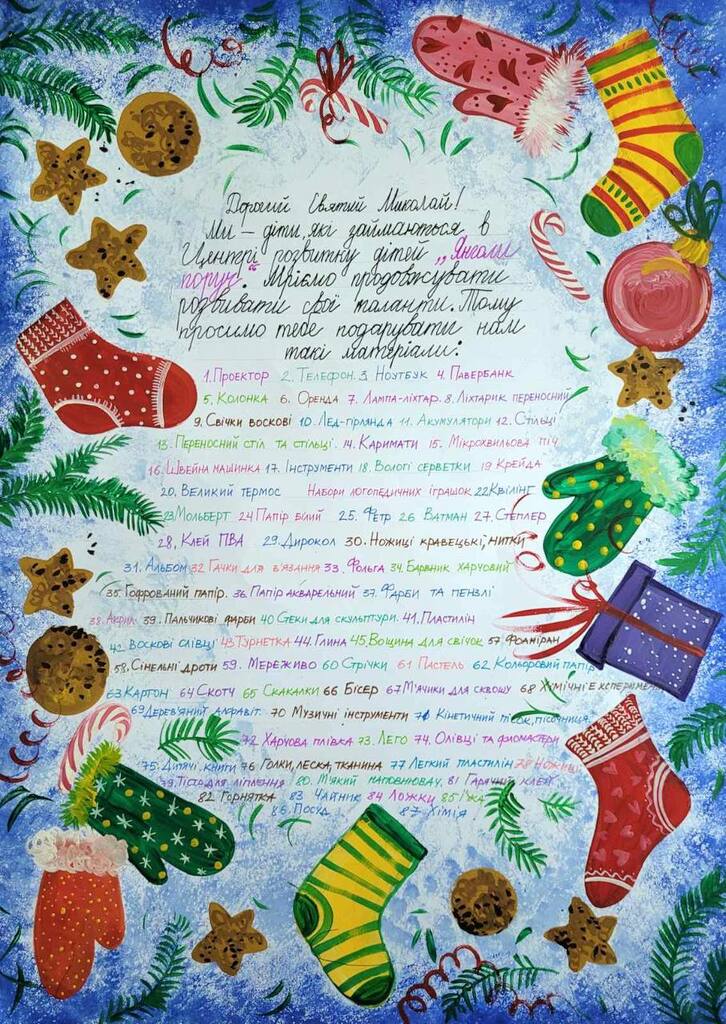 Дорогий Святий Миколай!
Ми – діти, які займаються в
Центрі розвитку дітей „Янголи
поруч". Мріємо продовжувати
розвивати свої таланти. Тому
просимо тебе подарувати нам
такі матеріали:
1. Проектор 2. Телефон. 3. Ноутбук 4. Павербанк
5. Колонка 6. Оренда 7. Лампа-ліхтар. 8. Ліхтарик переносний
9. Свічки воскові 10. Лед-гірлянда 11. Акумулятори 12. Стільці
13. Переносний стіл та стільці. 14. Каримати 15. Мікрохвильова піч
16. Швейна машинка 17. Інструменти 18. Вологі серветки 19 Крейда
20. Великий термос Набори логопедичних іграшок 22 Квілінг
23 Мольберт 24 Папір білий 25. Фетр 26 Ватман 27. Степлер
28. Клей ПВА 29. Дирокол 30. Ножиці кравецькі, нитки
31. Альбом 32 Гачки для в'язання 33. Фольга 34. Барвник харчовий
35. Гофрований папір. 36. Папір акварельний 37. Фарби та пензлі
38. Акрил. 39. Пальчикові фарби 40 Стеки для скульптури. 41. Пластилін
42. Воскові олівці 43 Турнетка 44. Глина 45 Вощина для свічок 57 Фоаміран
58. Сінельні дроти 59. Мереживо 60 Стрічки 61 Пастель 62 Кольоровий папір
63 Картон 64 Скотч 65 Скакалки 66 Бісер 67 М'ячики для сквошу 68 Хімічні експеримен
69 Дерев'яний алфавіт. 70 Музичні інструменти 71 Кінетичний пісок, пісочниця
72 Харчова плівка 73. Лего 74. Олівці та фломастери
75. Дитячі книги 76 Голки, леска, тканина 77 Легкий пластилін 78 Ножиці
79. Тісто для ліплення 80. М'який наповнювач. 81 Гарячий клей
82 Горнятка 83 Чайник 84 Ложки 85 Їжа
86. Посуд 87 Хімія